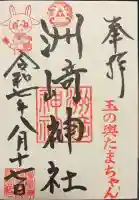 奉拝
玉の輿たまちゃん
洲崎神社
令和七年八月十七日